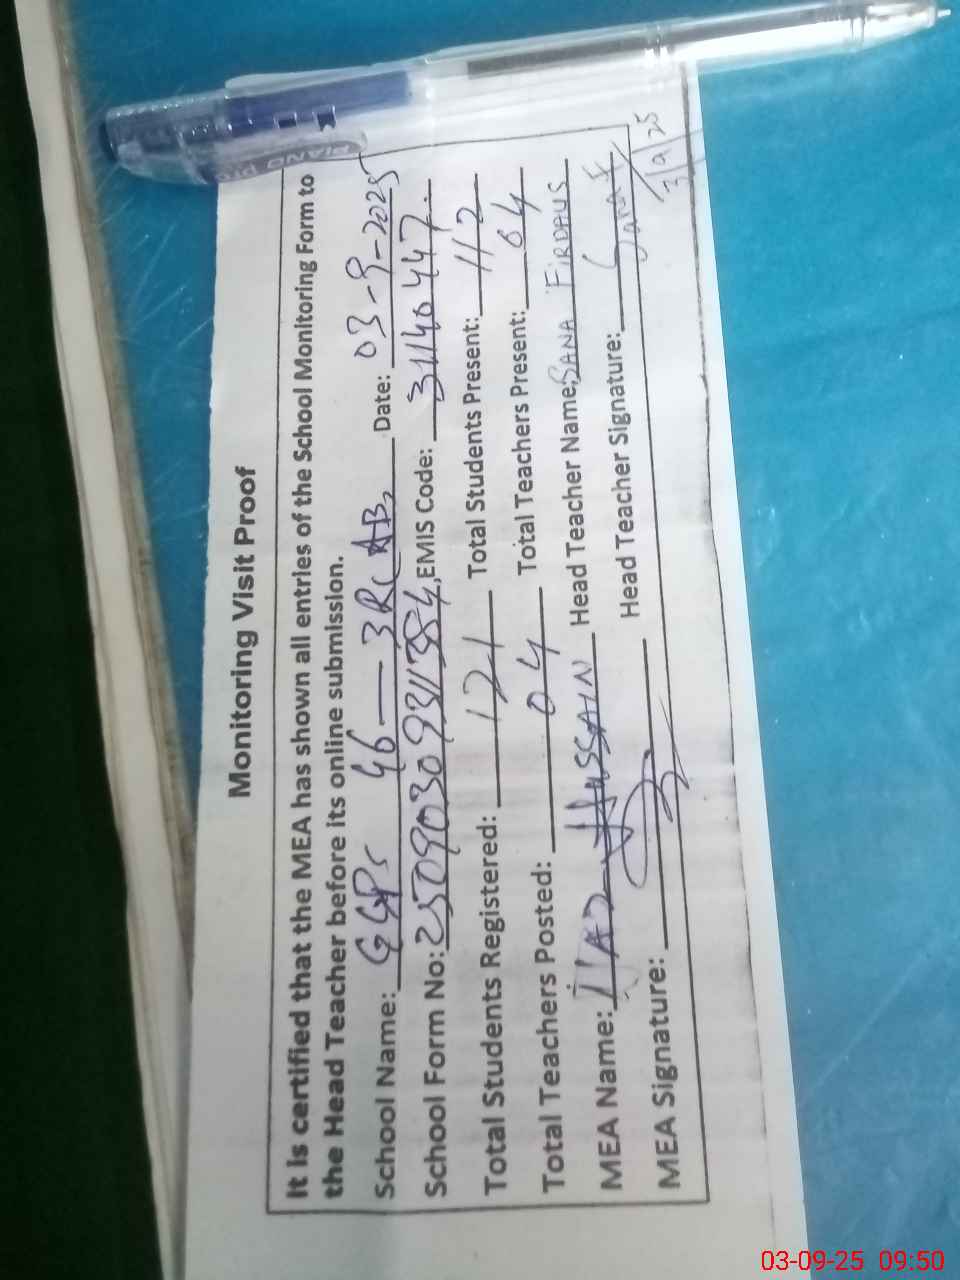 Monitoring Visit Proof
It is certified that the MEA has shown all entries of the School Monitoring Form to
the Head Teacher before its online submission.
School Name: GGPS 46-3R(AB) Date: 03-9-2025
School Form No: EMIS Code: 31140447
Total Students Registered: 121 Total Students Present: 112
Total Teachers Posted: 04 Total Teachers Present: 04
MEA Name: HUSSAIN Head Teacher Name: SANA FIRDAUS
MEA Signature: Head Teacher Signature: Sana F
3/9/25
PIANO
03-09-25 09:50